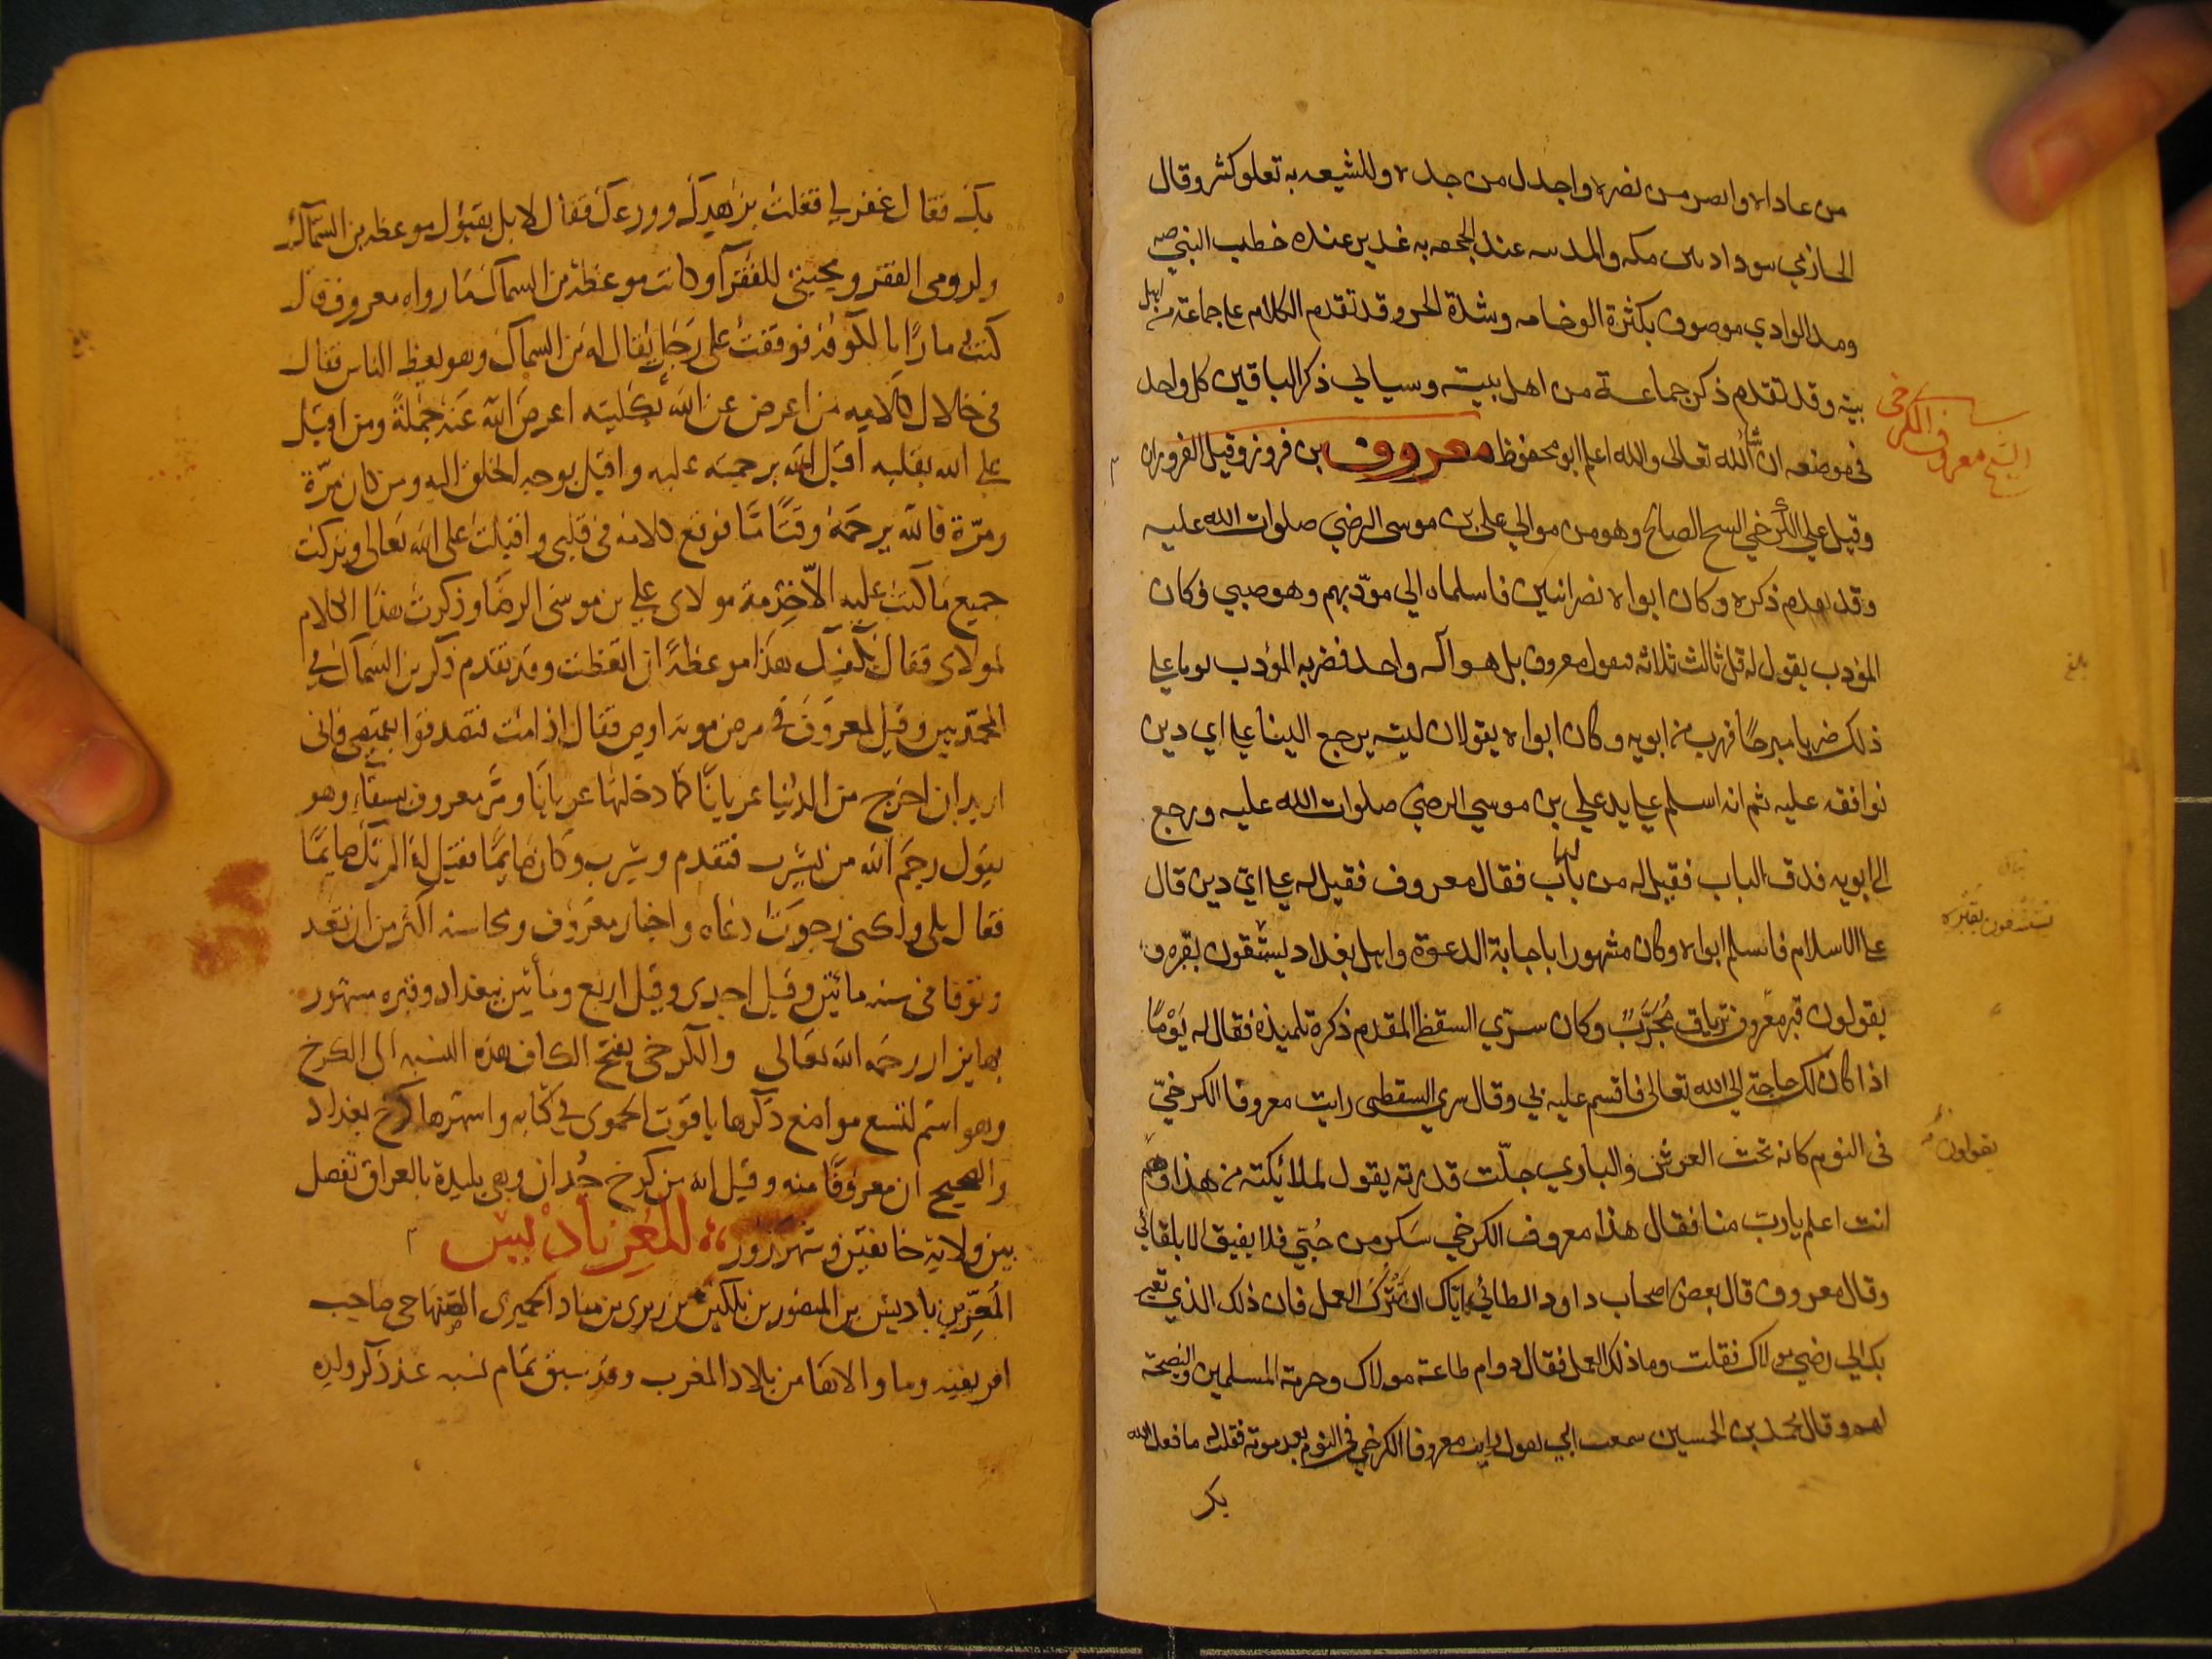 من عاداه وانصر من نصره واخذل من خذله وللشيعه به تعلق كثير وقال
الحازمي هو واد بين مكه والمدينه عند الجحفه به غدير عنده خطب النبي صلعم
وهذا الوادي موصوف بكثرة الوخامه وشدة الحر وقد تقدم الكلام على جماعة من اهل
بيته وقد تقدم ذكر جماعة من اهل بيته وسياتي ذكر الباقين كل واحد
في موضعه ان شا الله تعالى والله اعلم ابو محفوظ معروف بن فيروز وقيل الفيروزان
الشيخ معروف الكرخي
وقيل علي الكرخي الصالح وهو من موالي علي بن موسى الرضي صلوات الله عليه
وقد تقدم ذكره وكان ابواه نصرانيين فاسلماه الي مؤدبهم وهو صبي فكان
المؤدب يقول له قل ثالث ثلاثه فيقول معروف بل هو اله واحد فضربه المؤدب يوما على
بلغ
ذلك ضربا مبرحًا فهرب منه ابويه وكان ابواه يقولان ليته يرجع الينا على اي دين
نوافقه عليه ثم انه اسلم على يد علي بن موسي الرضي صلوات الله عليه ورجع
الى ابويه فدق الباب فقيل له من بالباب فقال معروف فقيل له على اي دين قال
على الاسلام فاسلم ابواه وكان مشهورا باجابة الدعوة واهل بغداد يستشفون بقبره و
يستسقون بقبره
يقولون قبر معروف ترياق مُجَرَّبٌ وكان سري السقطي المقدم ذكره تلميذه فقال له يَوْمًا
اذا كان لك حاجة الي الله تعالى فاقسم عليه بي وقال سري السقطي رايت معروفا الكرخيّ
في النوم كانه تحت العرش والباري جلّت قدرته يقول لملائكته من هذا وهم
يقولون
انت اعلم يا ربّ منا فقال هذا معروف الكرخي سَكر من حُبّي فلا يفيق الا بلقائي
وقال معروف قال بعض اصحاب داود الطائي اياك ان تَتْرُك العمل فان ذلك الذي يقربك
بك الي رضي مولاك فقلت وما ذلك العمل فقال دوام طاعة مولاك وحرمة المسلمين والنصيحة
لهم وقال محمد بن الحسين سمعت ابي يقول رايت معروفا الكرخي في النوم بعد موته فقلت له ما فعل الله
بك
بك فقال غفر لي فقلت بزهدك وورعك فقال لا بل بقبول موعظه بن السمّاك
ولزومي الفقر ومحبتي للفقرآ وكانت موعظة بن السماك مَا رواه معروف قال
كنت مارًا بالكوفة فوقفت على رَجلٍ يُقال له بن السماك وهو يعظ الناس فقال
في خلال كلامه من اعرض عن الله بكليته اعرض الله عَنه جُملةً ومن اقبل
على الله بقلبه اقبل الله برحمته عليه واقبل بوجه الخلق اليه ومن كان مَرّة
ومرّة فالله يرحمَهُ وقتًا مّا فوقع كلامه في قلبي واقبلت على الله تعالى وتركت
جميع مَا كنت عليه الّا خِدْمة مولاي علي بن موسى الرضَا وذكرت هذا الكلام
لمولاي فقال يكفيك بهذا موعظةً ان اتعظت وقد تقدم ذكر بن السّماك في
المحمّديين وقيل لمعروف في مرض موته اوص فقال اذا مت فتصدقوا بقميصي فاني
اريد ان اخرج من الدُنيا عريانًا كما دخلتها عريانًا ومَّر معروف بسقّاءٍ وهو
يقول رحم الله من يشرب فتقدم وشرب وكان صَايمًا فقيل له الم تك صايمًا
فقال بلي ولكني رجوت دعَاه واخبار معروف ومحاسنه اكثر من ان تعد
وتوفا في سنه مائتين وقيل احدى وقيل اربع ومائتين ببغداد وقبره مشهور
بها يزار رحمه الله تعالى والكرخي بفتح الكاف هذه النسبه الى الكرخ
وهو اسم لتسع مواضع ذكرها ياقوت الحموي في كتابه واشهرها كرخ بغداد
والصحيح ان معروفًا منه وقيل انه من كرخ جُدان وهي بليدة بالعراق تفصل
بين ولاية خانقين وشهرزور المُعِز باديس
المُعِزّ بن باديس بن المنصور بن بلكين بن زيري بن مناد الحميري الصنهاجي صاحب
افريقية وما والاها من بلاد المغرب وقد سبق تمام نسبه عند ذكر ولده